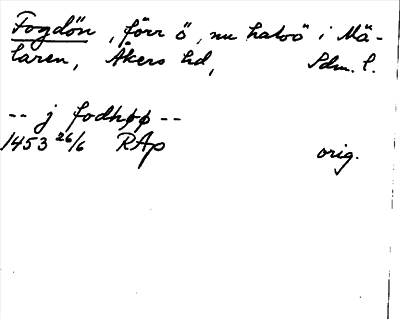 Fogdön, förr ö, nu halvö i Mä-
laren, Åkers hd, Sdm. l.
-- j fodhøø --
1453 26/6 RAp orig.